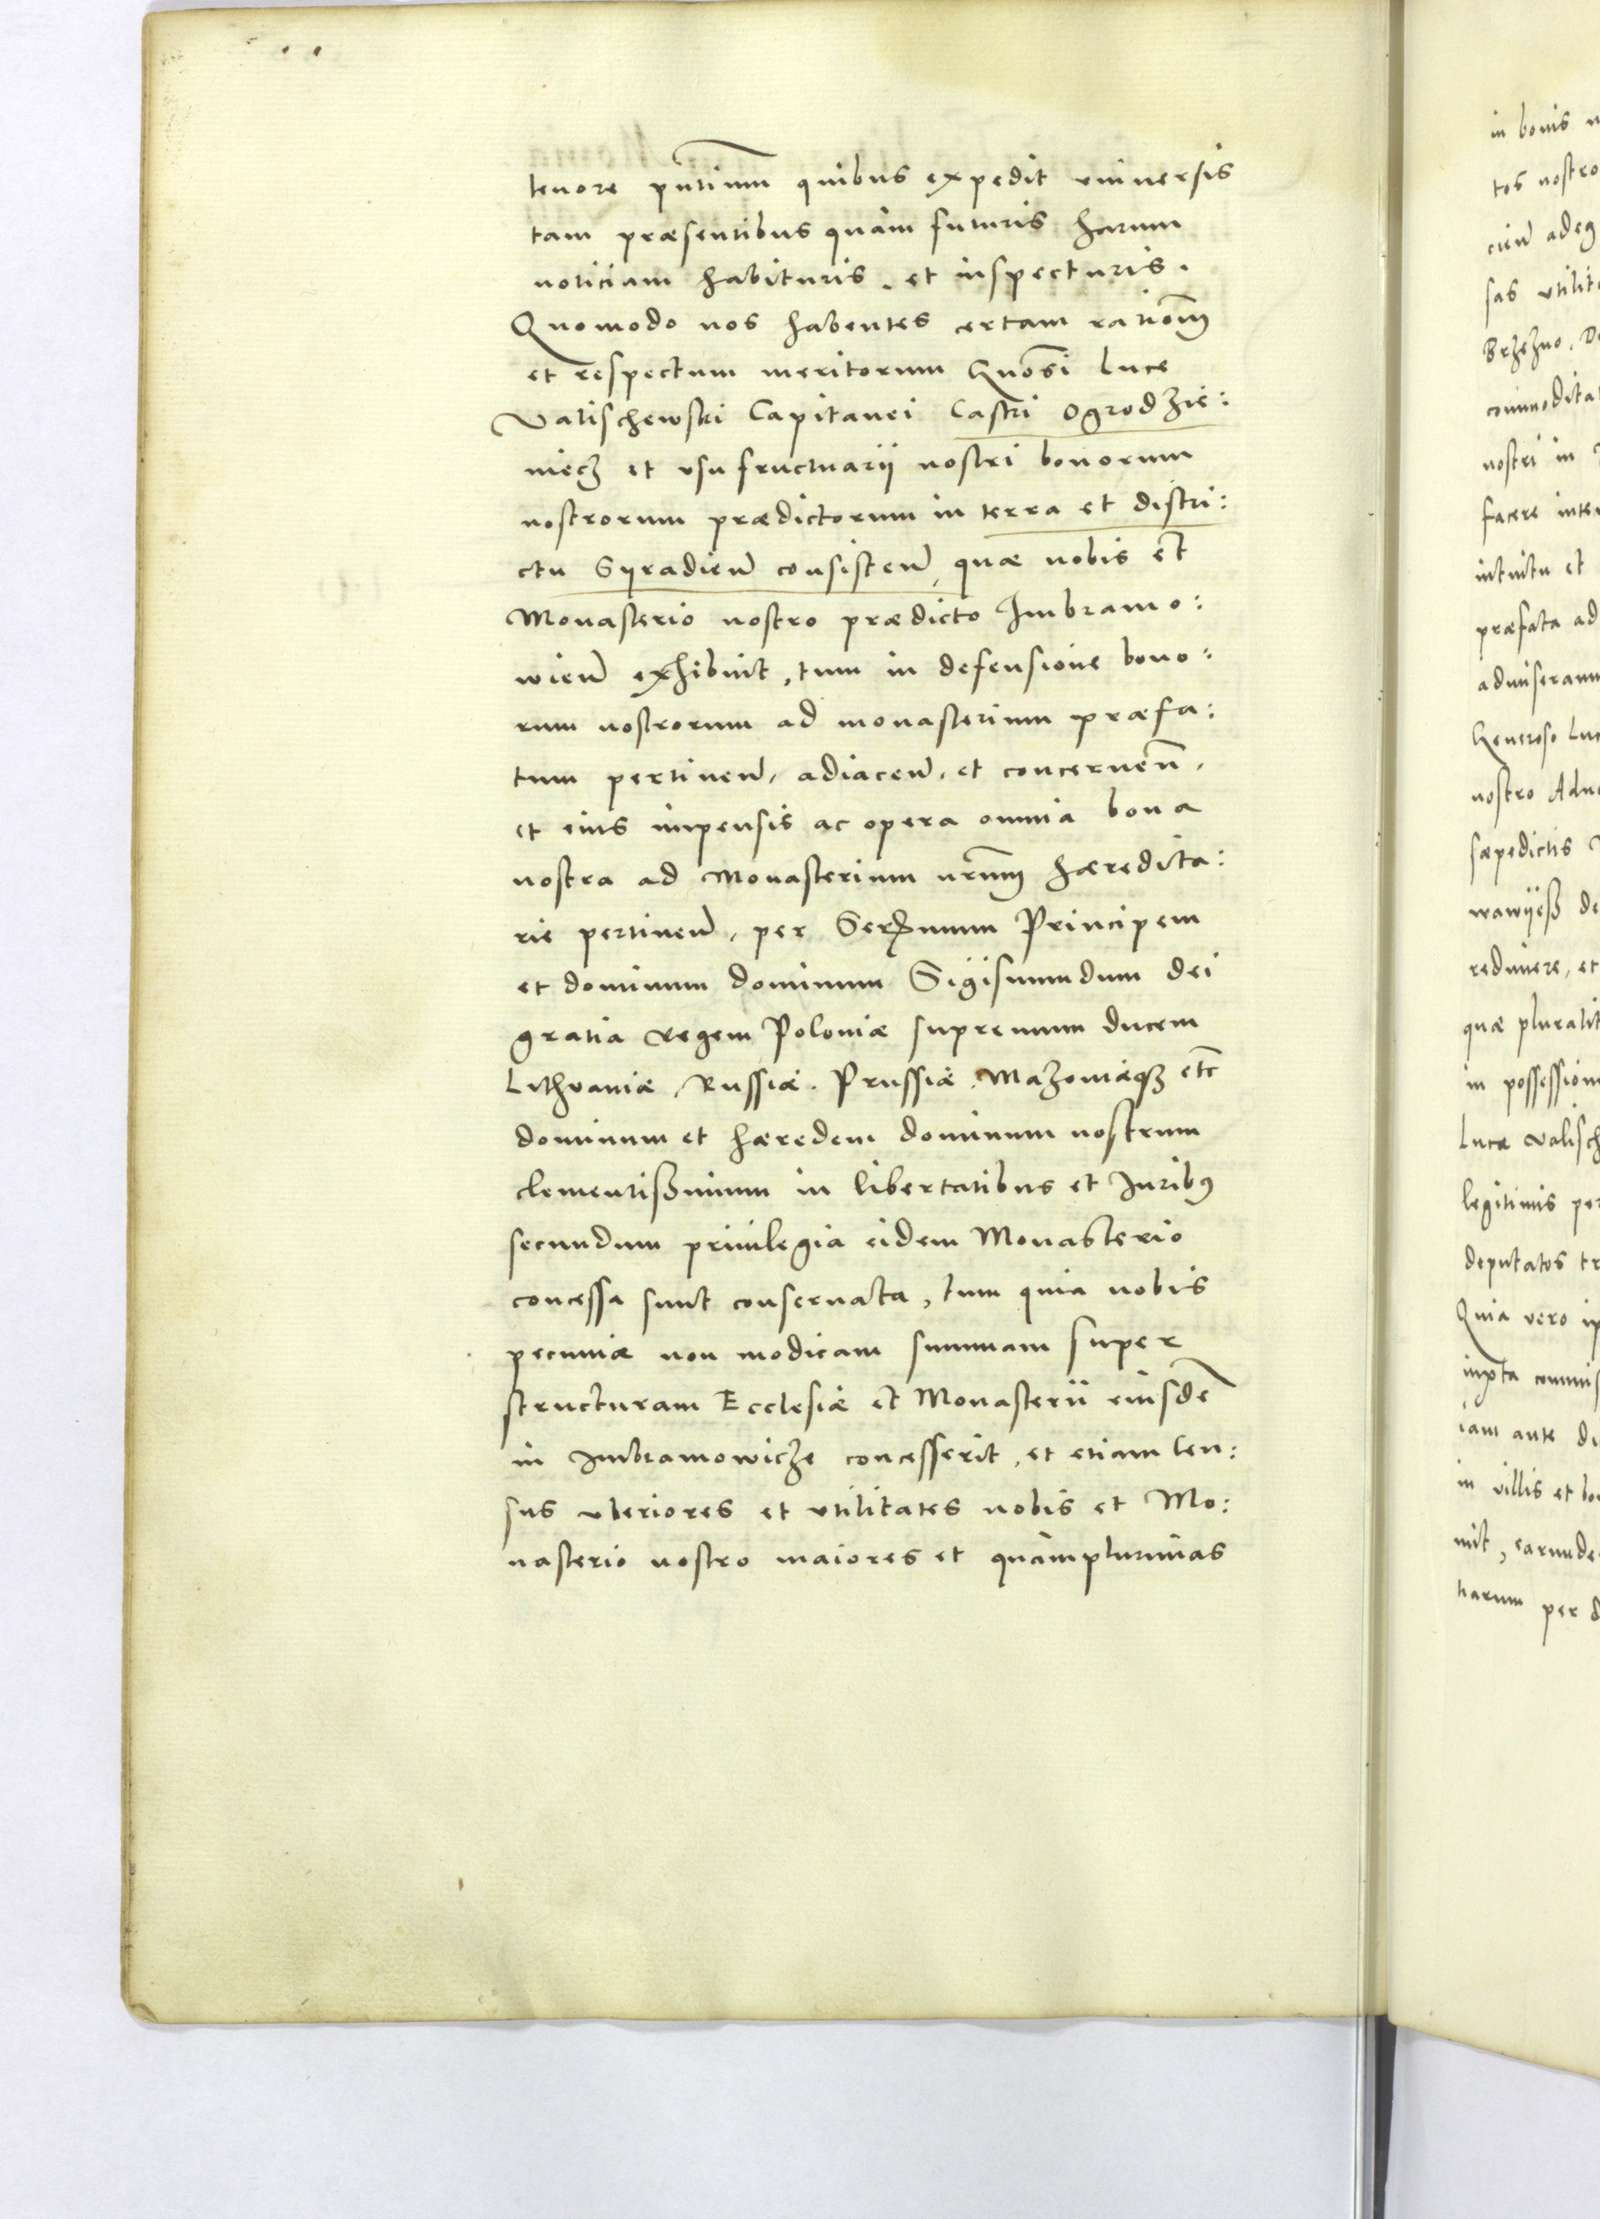 tenore pntium quibus expedit vniuersis
tam præsentibus quàm futuris harum
noticiam habituris. et inspecturis.
Quomodo nos habentes certam rationem
et respectum meritorum Gnosi Luce
Valischewski Capitanei Castri Ogrodzie:
niecz et vsufructuarii nostri bonorum
nostrorum prædictorum in terra et distri:
ctu Syradien consisten, quæ nobis et
Monasterio nostro prædicto Imbramo:
wien exhibuit, tum in defensione bono:
rum nostrorum ad monasterium præfa:
tum pertinen, adiacen, et concernen,
et eius impensis ac opera omnia bona
nostra ad Monasterium nrum hæredita:
rie pertinen, per Serenmum Principem
et dominum dominum Sigismundum dei
gratia regem Poloniæ supremum ducem
Lithvaniæ, Russiæ. Prussiæ. Mazoviæq3 etc
dominum et hæredem dominum nostrum
clementißimum in libertatibus et Iurib9
secundum priuilegia eidem Monasterio
concessa sunt conseruata, tum quia nobis
pecuniæ non modicam summam super
structuram Ecclesiæ et Monasterii eiusdē
in Imbramowicze concesserit, et etiam Cen:
sus vberiores et vtilitates nobis et Mo:
nasterio nostro maiores et quàmplurimas
in bonis
tos nostro
cien adeq
sas vtilit
Brzezno.
commodita
nostri in
facere inte
intuitu et
præfata ad
admiseram
Generoso Luc
nostro Adu
sæpedictis
wawyeß de
redimere, et
quæ pluralit
in possession
Lucæ Valisch
legitimis per
deputatos tr
Quia vero ip
commis
iam ante di
in villis et bo
nit, earunde
tiarum per